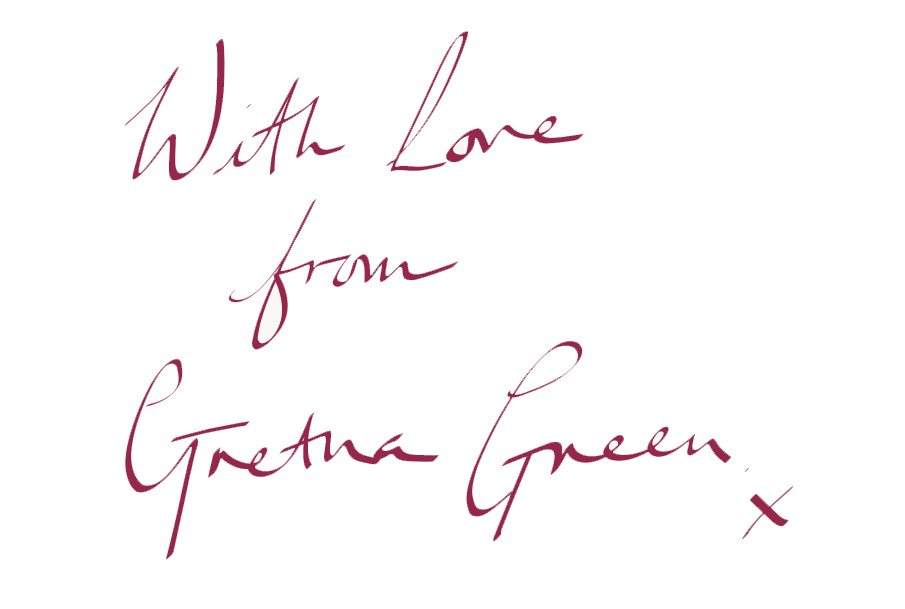 With Love
from
Gretna Green
x